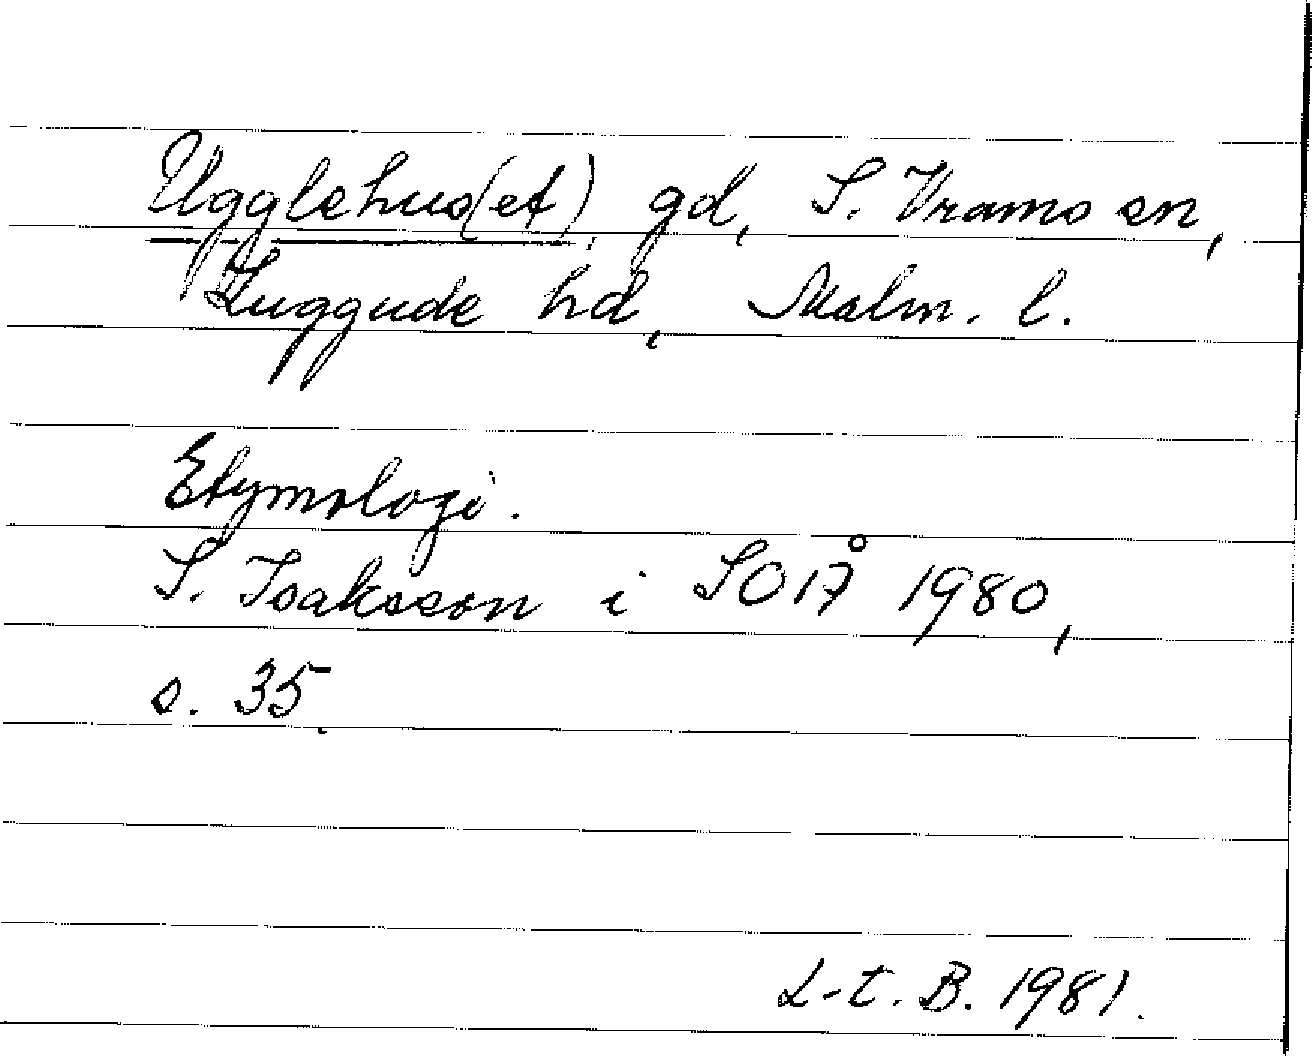 Ugglehus(et), gd, S. Vrams sn,
Luggude hd, Malm. l.
Etymologi.
S. Isaksson i SOÅ 1980,
s. 35.
L-t. B. 1981.